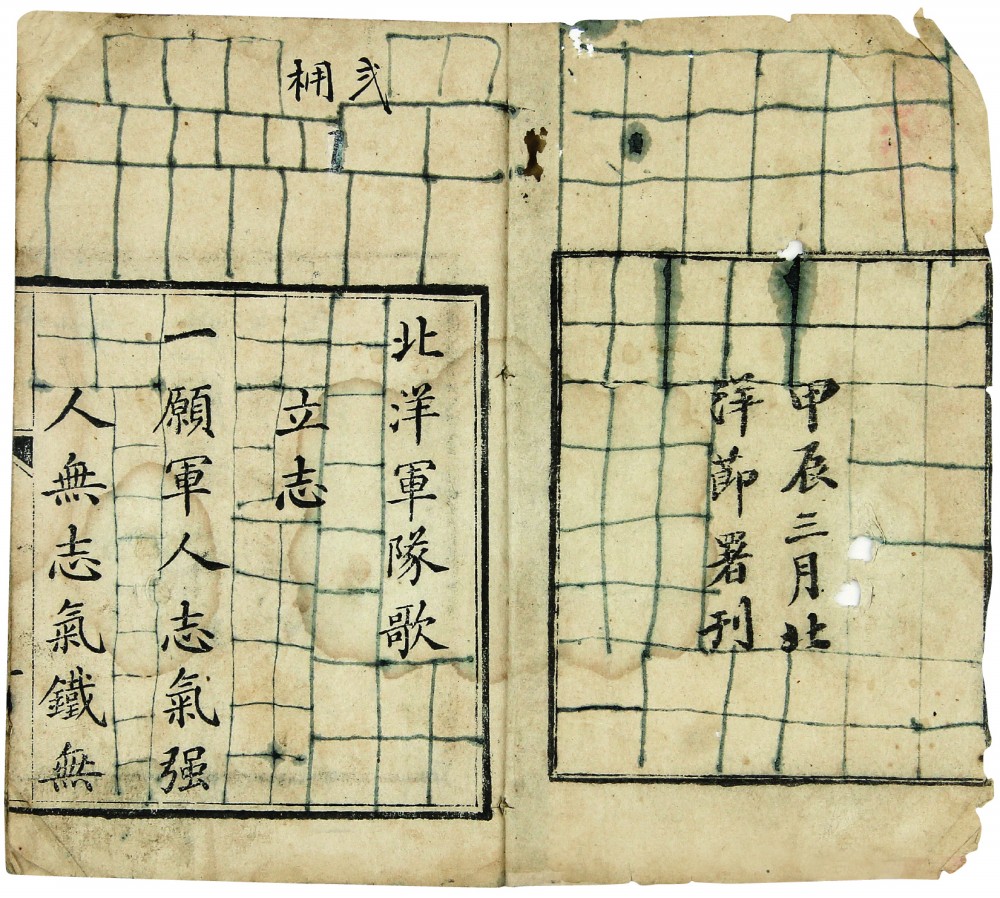 甲辰三月北
洋節署刊
弍
北洋軍隊歌
立志
一願軍人志氣强
人無志氣鐵無